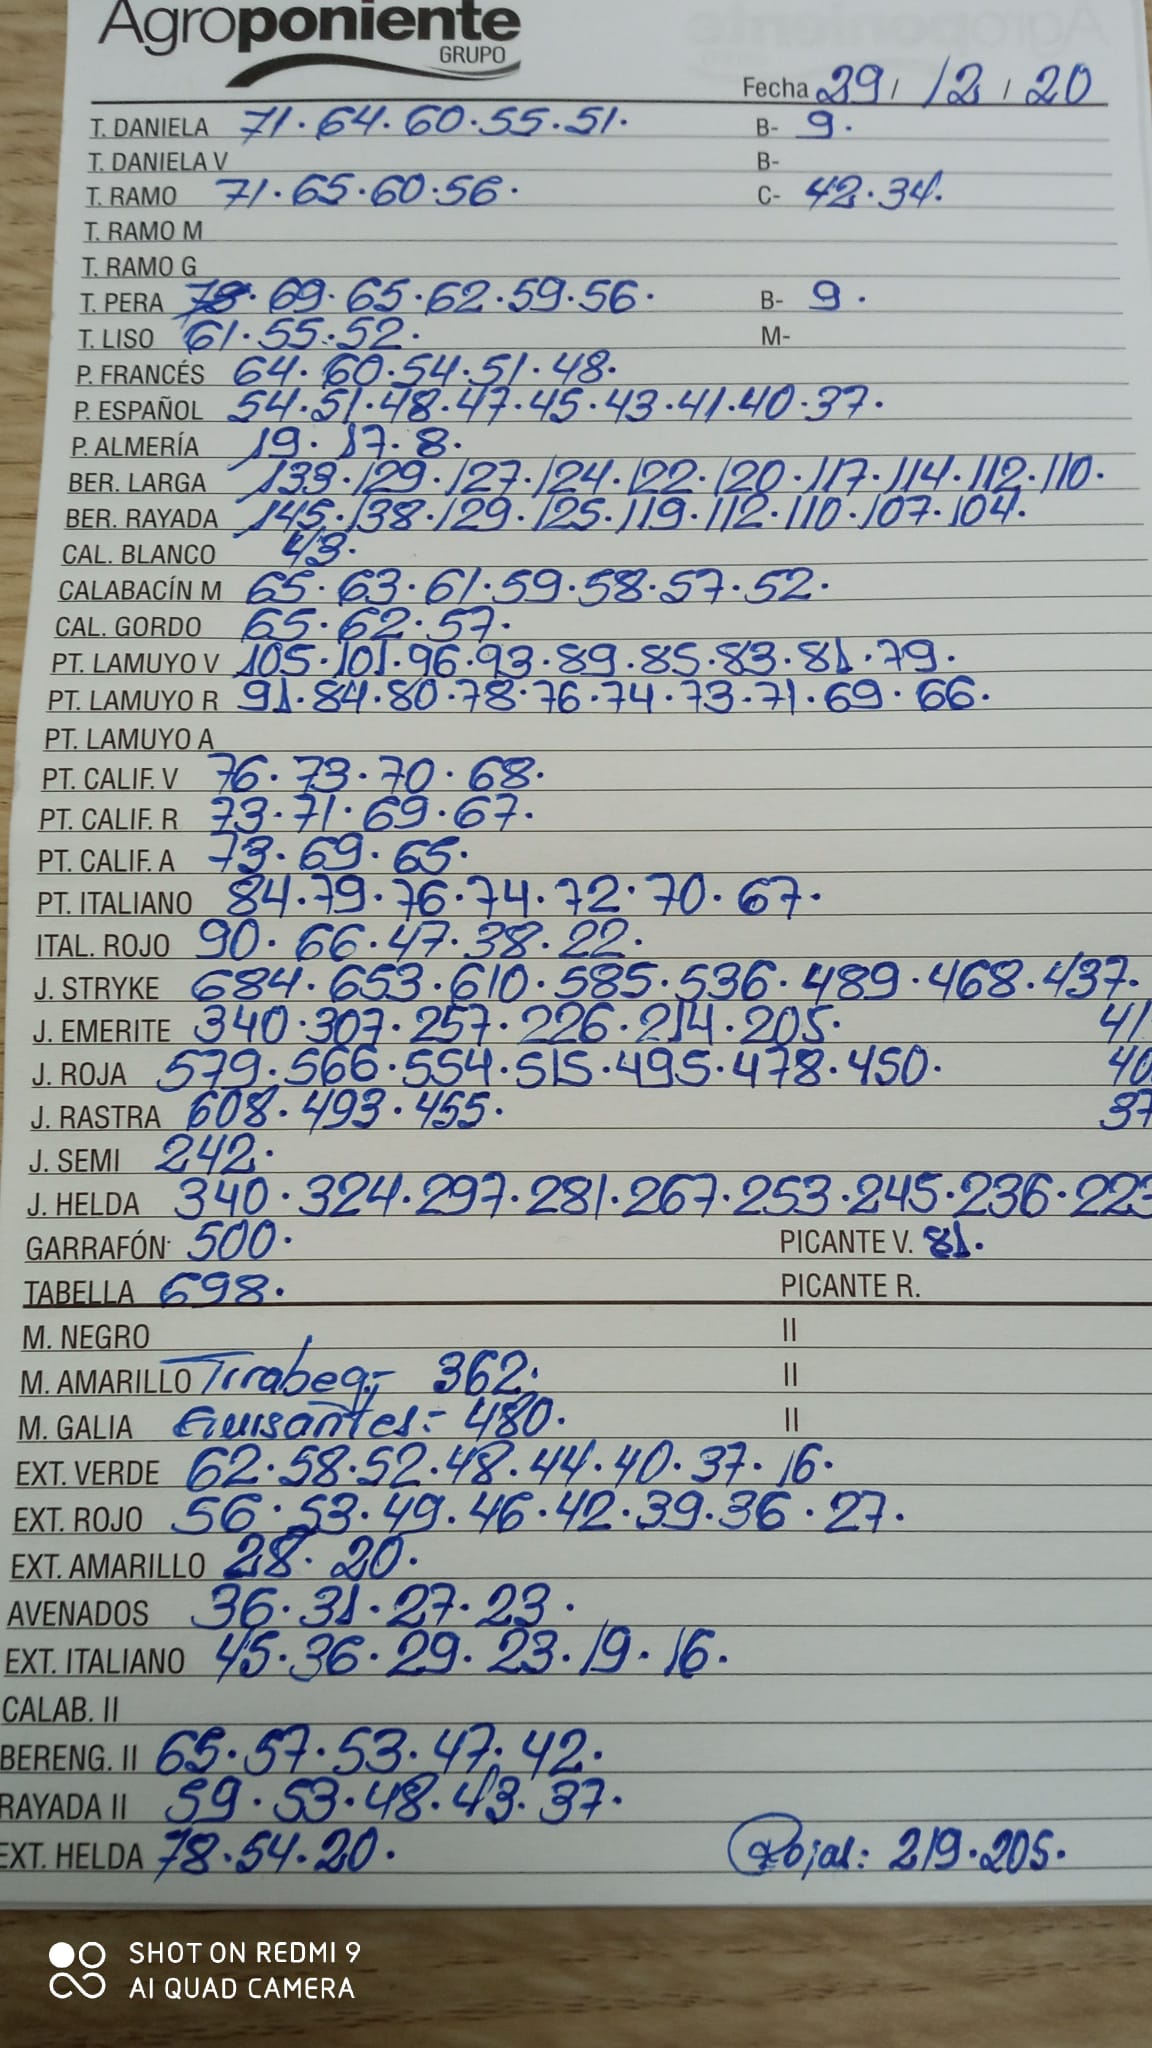 Agroponiente
GRUPO
Fecha 29 / 12 / 20
T. DANIELA 71. 64. 60. 55. 51. B- 9.
T. DANIELA V B-
T. RAMO 71. 65. 60. 56. C- 42. 34.
T. RAMO M
T. RAMO G
T. PERA 69. 65. 62. 59. 56. B- 9.
T. LISO 61. 55. 52. M-
P. FRANCÉS 64. 60. 54. 51. 48.
P. ESPAÑOL 54. 51. 48. 47. 45. 43. 41. 40. 37.
P. ALMERÍA 19. 17. 8.
BER. LARGA 133. 129. 127. 124. 122. 120. 117. 114. 112. 110.
BER. RAYADA 145. 138. 129. 125. 119. 112. 110. 107. 104.
CAL. BLANCO 43.
CALABACÍN M 65. 63. 61. 59. 58. 57. 52.
CAL. GORDO 65. 62. 57.
PT. LAMUYO V 105. 101. 96. 93. 89. 85. 83. 81. 79.
PT. LAMUYO R 91. 84. 80. 78. 76. 74. 73. 71. 69. 66.
PT. LAMUYO A
PT. CALIF. V 76. 73. 70. 68.
PT. CALIF. R 73. 71. 69. 67.
PT. CALIF. A 73. 69. 65.
PT. ITALIANO 84. 79. 76. 74. 72. 70. 67.
ITAL. ROJO 90. 66. 47. 38. 22.
J. STRYKE 684. 653. 610. 585. 536. 489. 468. 437.
J. EMERITE 340. 307. 257. 226. 214. 205. 41
J. ROJA 579. 566. 554. 515. 495. 478. 450. 40
J. RASTRA 608. 493. 455. 37
J. SEMI 242.
J. HELDA 340. 324. 297. 281. 267. 253. 245. 236. 223
GARRAFÓN 500. PICANTE V. 81.
TABELLA 698. PICANTE R.
M. NEGRO II
M. AMARILLO Tirabeq:- 362. II
M. GALIA Guisantes:- 480. II
EXT. VERDE 62. 58. 52. 48. 44. 40. 37. 16.
EXT. ROJO 56. 53. 49. 46. 42. 39. 36. 27.
EXT. AMARILLO 28. 20.
AVENADOS 36. 31. 27. 23.
EXT. ITALIANO 45. 36. 29. 23. 19. 16.
CALAB. II
BERENG. II 65. 57. 53. 47. 42.
RAYADA II 59. 53. 48. 43. 37.
EXT. HELDA 78. 54. 20. Rojas: 219. 205.
SHOT ON REDMI 9
AI QUAD CAMERA